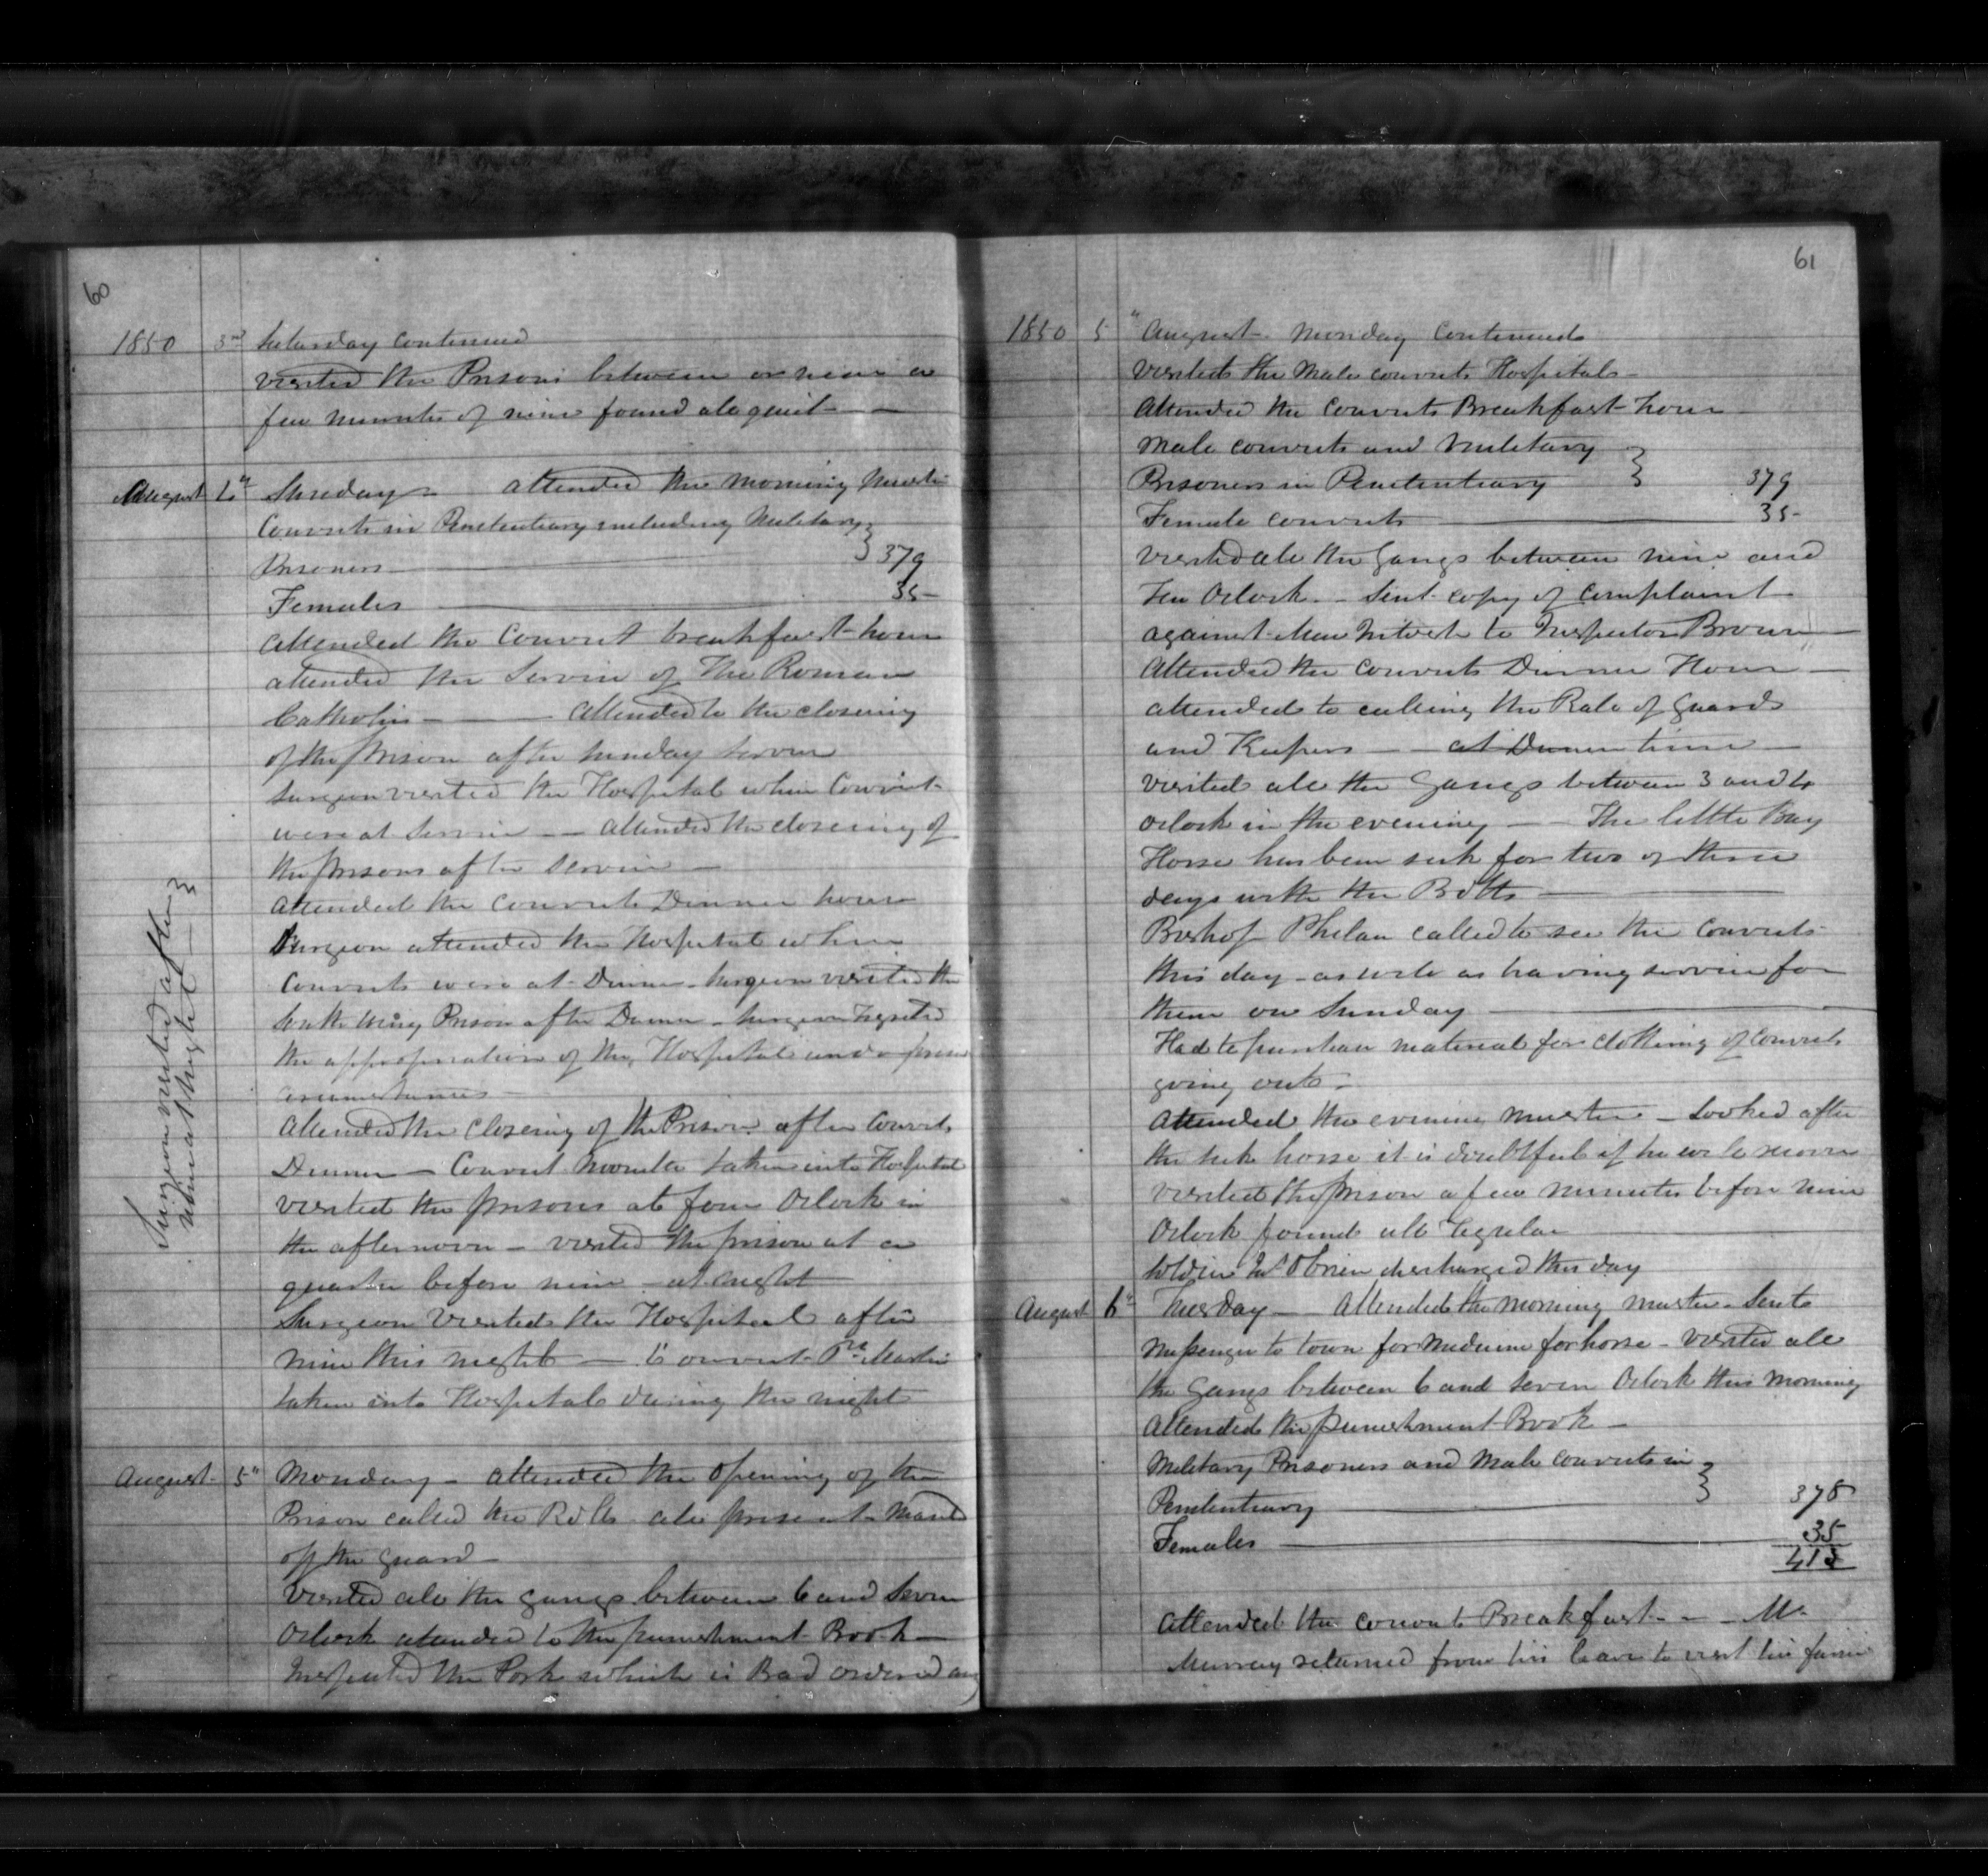 60
1850 3rd Saturday continued
visited the Prisons between or near a
few minutes of nine found all quiet
August 4" Sunday attended the morning Muster
Convicts in Penetentiary including Military
Prisoners 379
Females 35
attended the Convict breakfast hour
attended the Service of The Roman
Catholics Attended to the closeing
of the prison after Sunday Service
Surgeon visited the Hospital when Convicts
were at Service Attended the closeing of
the prisons after Service
attended the Convicts Dinner hour
Surgeon attended the Hospital when
Convicts were at Dinner Surgeon visited the
South Wing Prison after Dinner Surgeon
the of the Hospital under
circumstances
Attended the closeing of the Prison after Convicts
Dinner Convict taken into Hospital
visited the prisons at four Oclock in
the afternoon visited the prison at a
quarter before nine at night
Surgeon Visited the Hospital after
nine this night Convict Martin
taken into Hospital during the night
Surgeon visited after
nine at night
August 5" Monday attended the Opening of the
Prison called the Rolls all present
off the Guard
Visited all the gangs between 6 and Seven
Oclock attended to the punishment Book
Inspected the Pork which is Bad ordered
61
1850 5" August Monday Continued
visited the Male convicts Hospital
Attended the Convicts Breakfast hour
Male convicts and Military
Prisoners in Penetentiary 379
Female convicts 35
visited all the Gangs between nine and
Ten Oclock Sent copy of complaint
against to Inspector Brown
Attended the Convicts Dinner Hour
attended to calling the Role of Guards
and Keepers at Dinner time
visited all the Gangs between 3 and 4
Oclock in the evening The little Bay
Horse has been sick for two or three
days with the Botts
Bishop Phelan called to see the Convicts
this day as well as having service for
them on Sunday
Had to purchase material for clothing of Convicts
going out
Attended the evening muster Looked after
the sick horse it is doubtful if he will recover
visited the prison a few minutes before nine
Oclock found all Regular
Soldier OBrien discharged this day
August 6" Tuesday Attended the morning muster Sent
Messenger to town for Medicine for horse visited all
the Gangs between 6 and Seven Oclock this morning
Attended the punishment Book
Military Prisoners and Male Convicts in
Penetentiary 378
Females 35
413
Attended the convicts Breakfast Mr
Murray returned from his leave to visit his